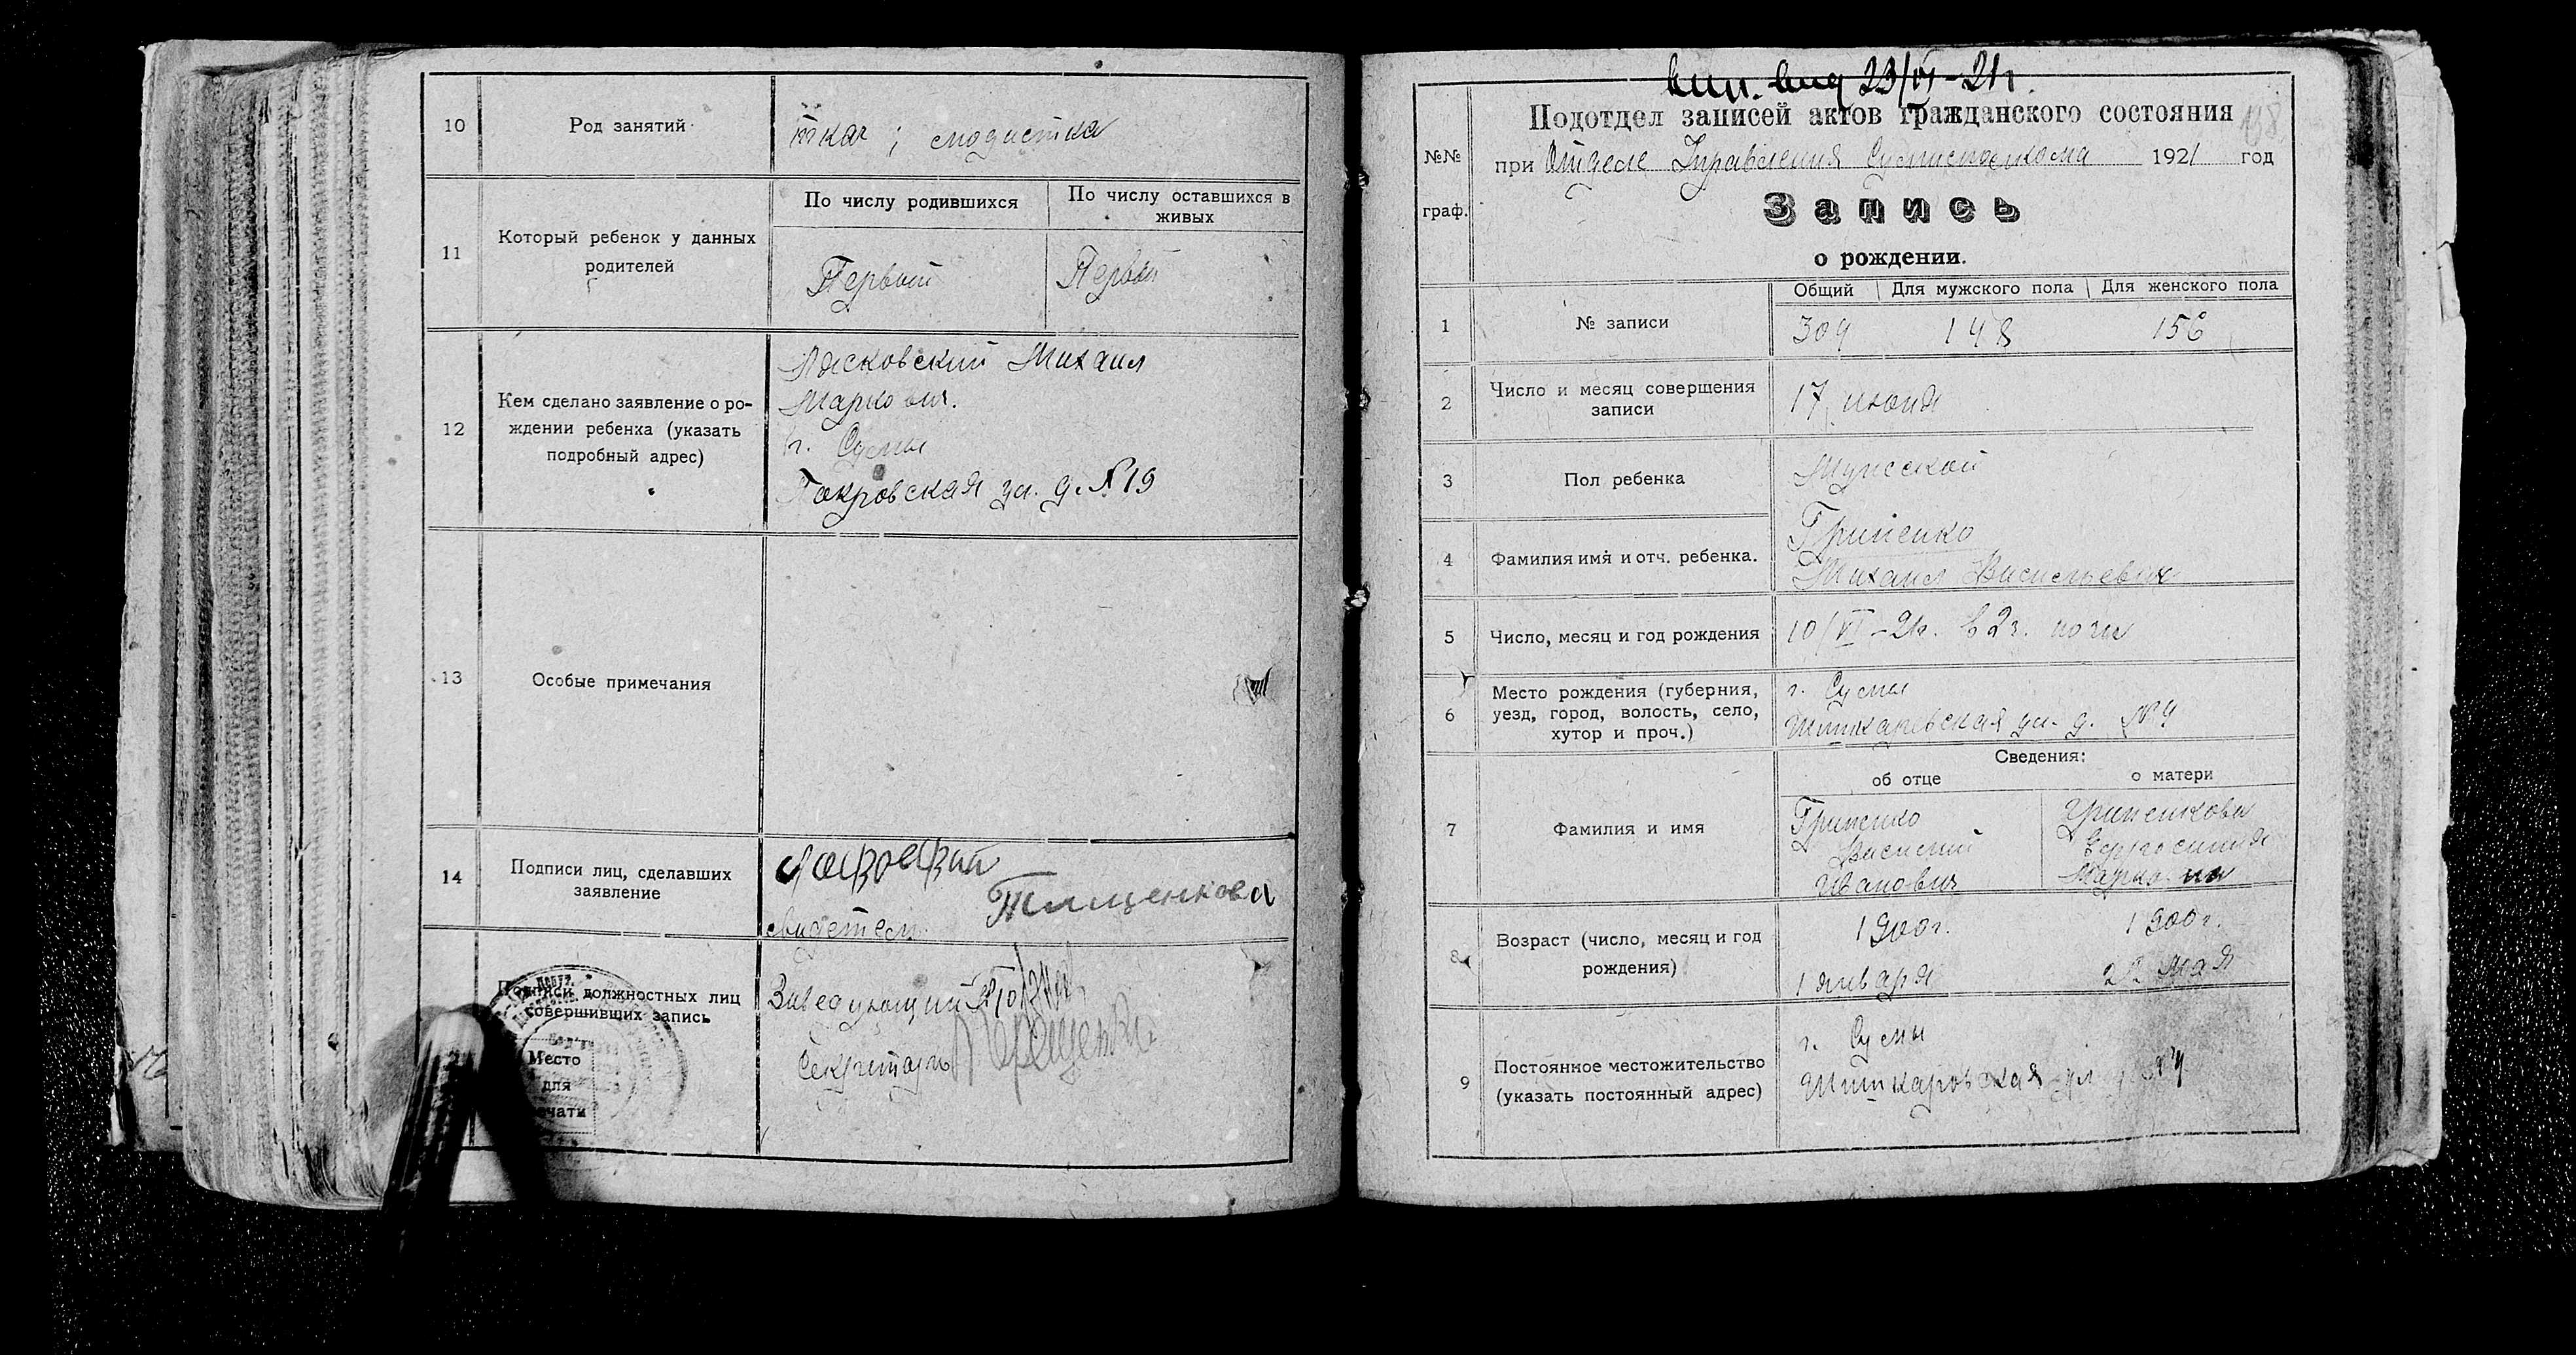 10
Род занятий
ткач ; модистка
11
Который ребенок у данных
родителей
По числу родившихся
По числу оставшихся в
живых
Первый
Первый
12
Кем сделано заявление о ро-
ждении ребенка (указать
подробный адрес)
Лясковский Михаил
Маркович.
г. Сумы
Покровская ул. д. № 19
13
Особые примечания
14
Подписи лиц, сделавших
заявление
Тищенкова
свидетели
Подписи должностных лиц
совершивших запись
Заведующий
Секретарь
Место
для
печати
23/VI-21г.
№№
граф.
Подотдел записей актов гражданского состояния
при Отделе Управления Сумисполкома 1921 год
Запись
о рождении.
Общий
Для мужского пола
Для женского пола
1
№ записи
304
148
156
2
Число и месяц совершения
записи
17 июня
3
Пол ребенка
Мужской
4
Фамилия имя и отч. ребенка.
Гриценко
Михаил Васильевич
5
Число, месяц и год рождения
10/VI-21г. в 2ч. ночи
6
Место рождения (губерния,
уезд, город, волость, село,
хутор и проч.)
г. Сумы
ул. д. №
Сведения:
об отце
о матери
7
Фамилия и имя
Гриценко
Василий
Иванович
Гриценкова
Ефросиния
Марковна
8
Возраст (число, месяц и год
рождения)
1900г.
1 января
1900г.
22 мая
9
Постоянное местожительство
(указать постоянный адрес)
г. Сумы
ул.